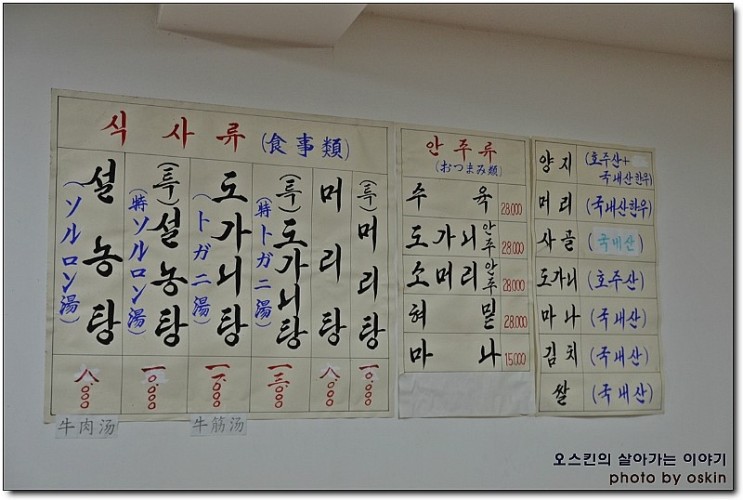 식사류 (食事類)
설농탕
(ソルロン湯)
(특)설농탕
(特ソルロン湯)
도가니탕
(トガニ湯)
(특)도가니탕
(特トガニ湯)
머리탕
(특)머리탕
八.000
一0.000
八.000
一0.000
牛肉汤
牛筋汤
안주류
(おつまみ類)
수육 28.000
도가니안주 28.000
소머리안주 28.000
혀밑 28.000
마나 15.000
양지 (호주산+
국내산한우)
머리 (국내산한우)
사골 (국내산)
도가니 (호주산)
마나 (국내산)
김치 (국내산)
쌀 (국내산)
오스킨의 살아가는 이야기
photo by oskin